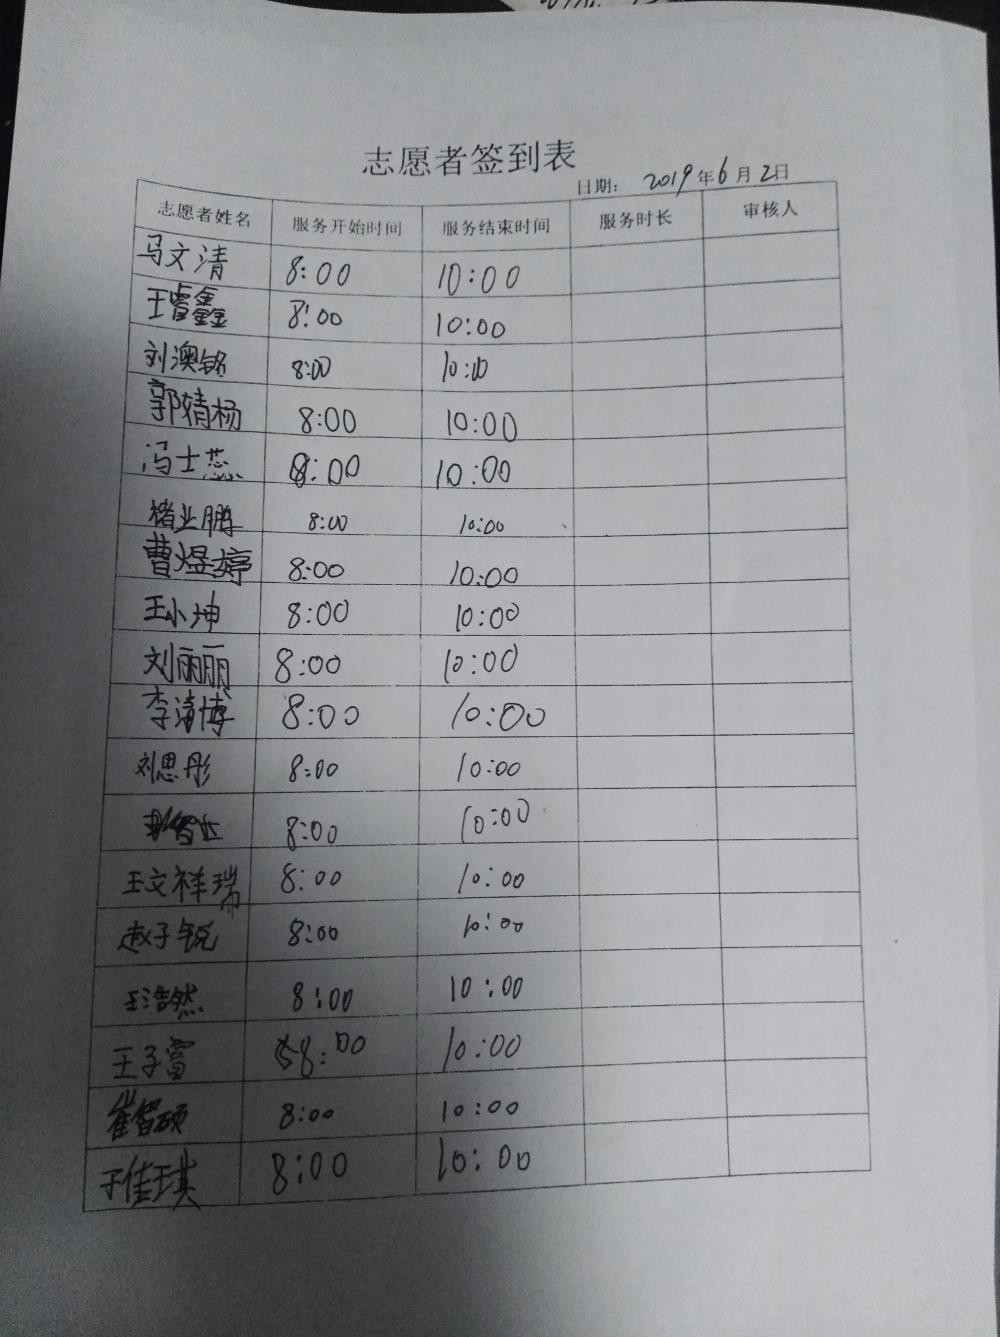 志愿者签到表
日期： 2019年6月2日
志愿者姓名 服务开始时间 服务结束时间 服务时长 审核人
马文清 8:00 10:00
王睿鑫 8:00 10:00
刘澳铭 8:00 10:00
郭婧杨 8:00 10:00
冯士蕊 8:00 10:00
褚业鹏 8:00 10:00
曹煜婷 8:00 10:00
王小坤 8:00 10:00
刘丽丽 8:00 10:00
李清博 8:00 10:00
刘思彤 8:00 10:00
8:00 10:00
王文祥瑞 8:00 10:00
赵子锐 8:00 10:00
王浩然 8:00 10:00
王子富 8:00 10:00
崔智硕 8:00 10:00
于佳琪 8:00 10:00